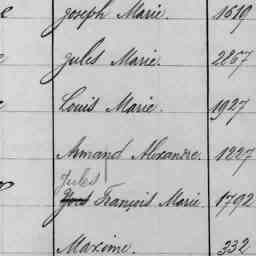 Joseph Marie. 1619
Jules Marie. 2867
Louis Marie. 1927
Armand Alexandre. 1227
Jules
Yves François Marie 1792
Maxime. 332